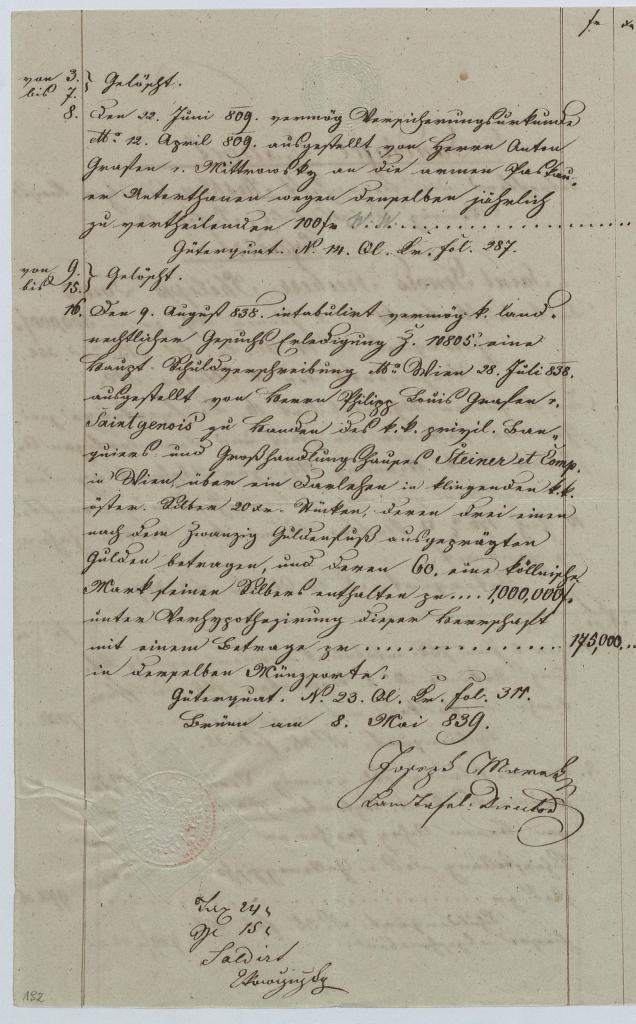 fr
von 3.
bis 7. } Gelöscht.
8. Den 22. Juni 809. vermög Versicherungsurkunde
dto 12. April 809. ausgestellt von Herrn Anton
Grafen v. Mittrowsky an die armen Paskau-
er Unterthanen wegen denselben jährlich
zu vertheilenden 100 fr W. W. . . . . . . . . . . .
Güterquat. No. 14. Ol. Kr. fol. 287.
von 9.
bis 15. } Gelöscht.
16. Den 9. August 838. intabulirt vermög k. land-
rechtlicher Gesuchs Erledigung Z. 10805. eine
Haupt-Schuldverschreibung dto Wien 28. Juli 838.
ausgestellt von Herrn Philipp Louis Grafen v.
Saintgenois zu Handen des k. k. privil. Ban-
quiers und Großhandlungshauses Steiner et Comp.
in Wien, über ein Darlehen in klingenden k. k.
öster. Silber 20 xr. Stücken, deren drei einen
nach dem Zwanzig Guldenfuß ausgeprägten
Gulden betragen, und deren 60. eine köllnische
Mark feinen Silbers enthalten pr . . . . 1,000,000 f.
unter Verhypothezirung dieser Herrschaft
mit einem Betrage pr . . . . . . . . . . . . . . 175,000. . .
in derselben Münzsorte.
Güterquat. No. 23. Ol. Kr. fol. 311.
Brünn am 8. Mai 839.
Joseph Marek
Landtafel-Director
Tax 24
15
Saldirt
192